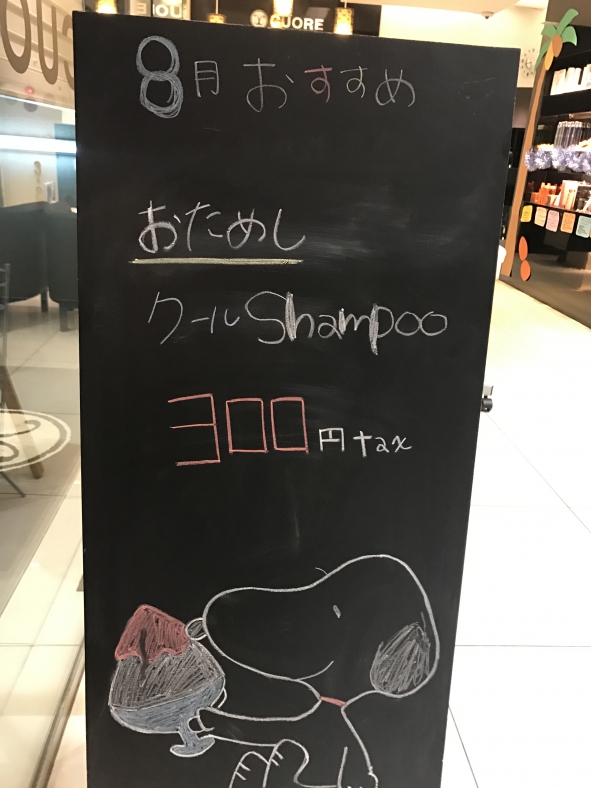 CUORE
8月おすすめ
おためし
クールShampoo
300円+tax